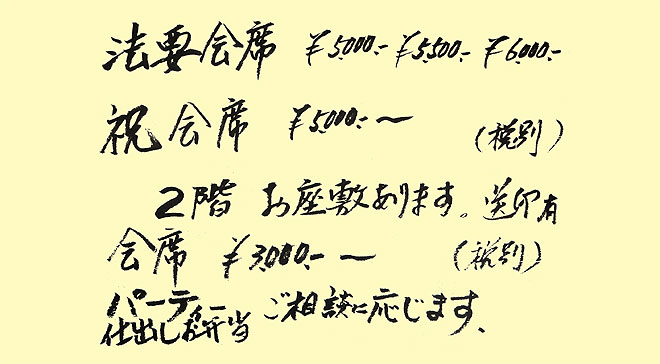 法要会席 ¥5,000.- ¥5,500.- ¥6,000.-
祝会席 ¥5,000.-〜 (税別)
2階 お座敷あります。送印有
会席 ¥3,000.-〜 (税別)
パーティー
仕出しお弁当 ご相談に応じます、